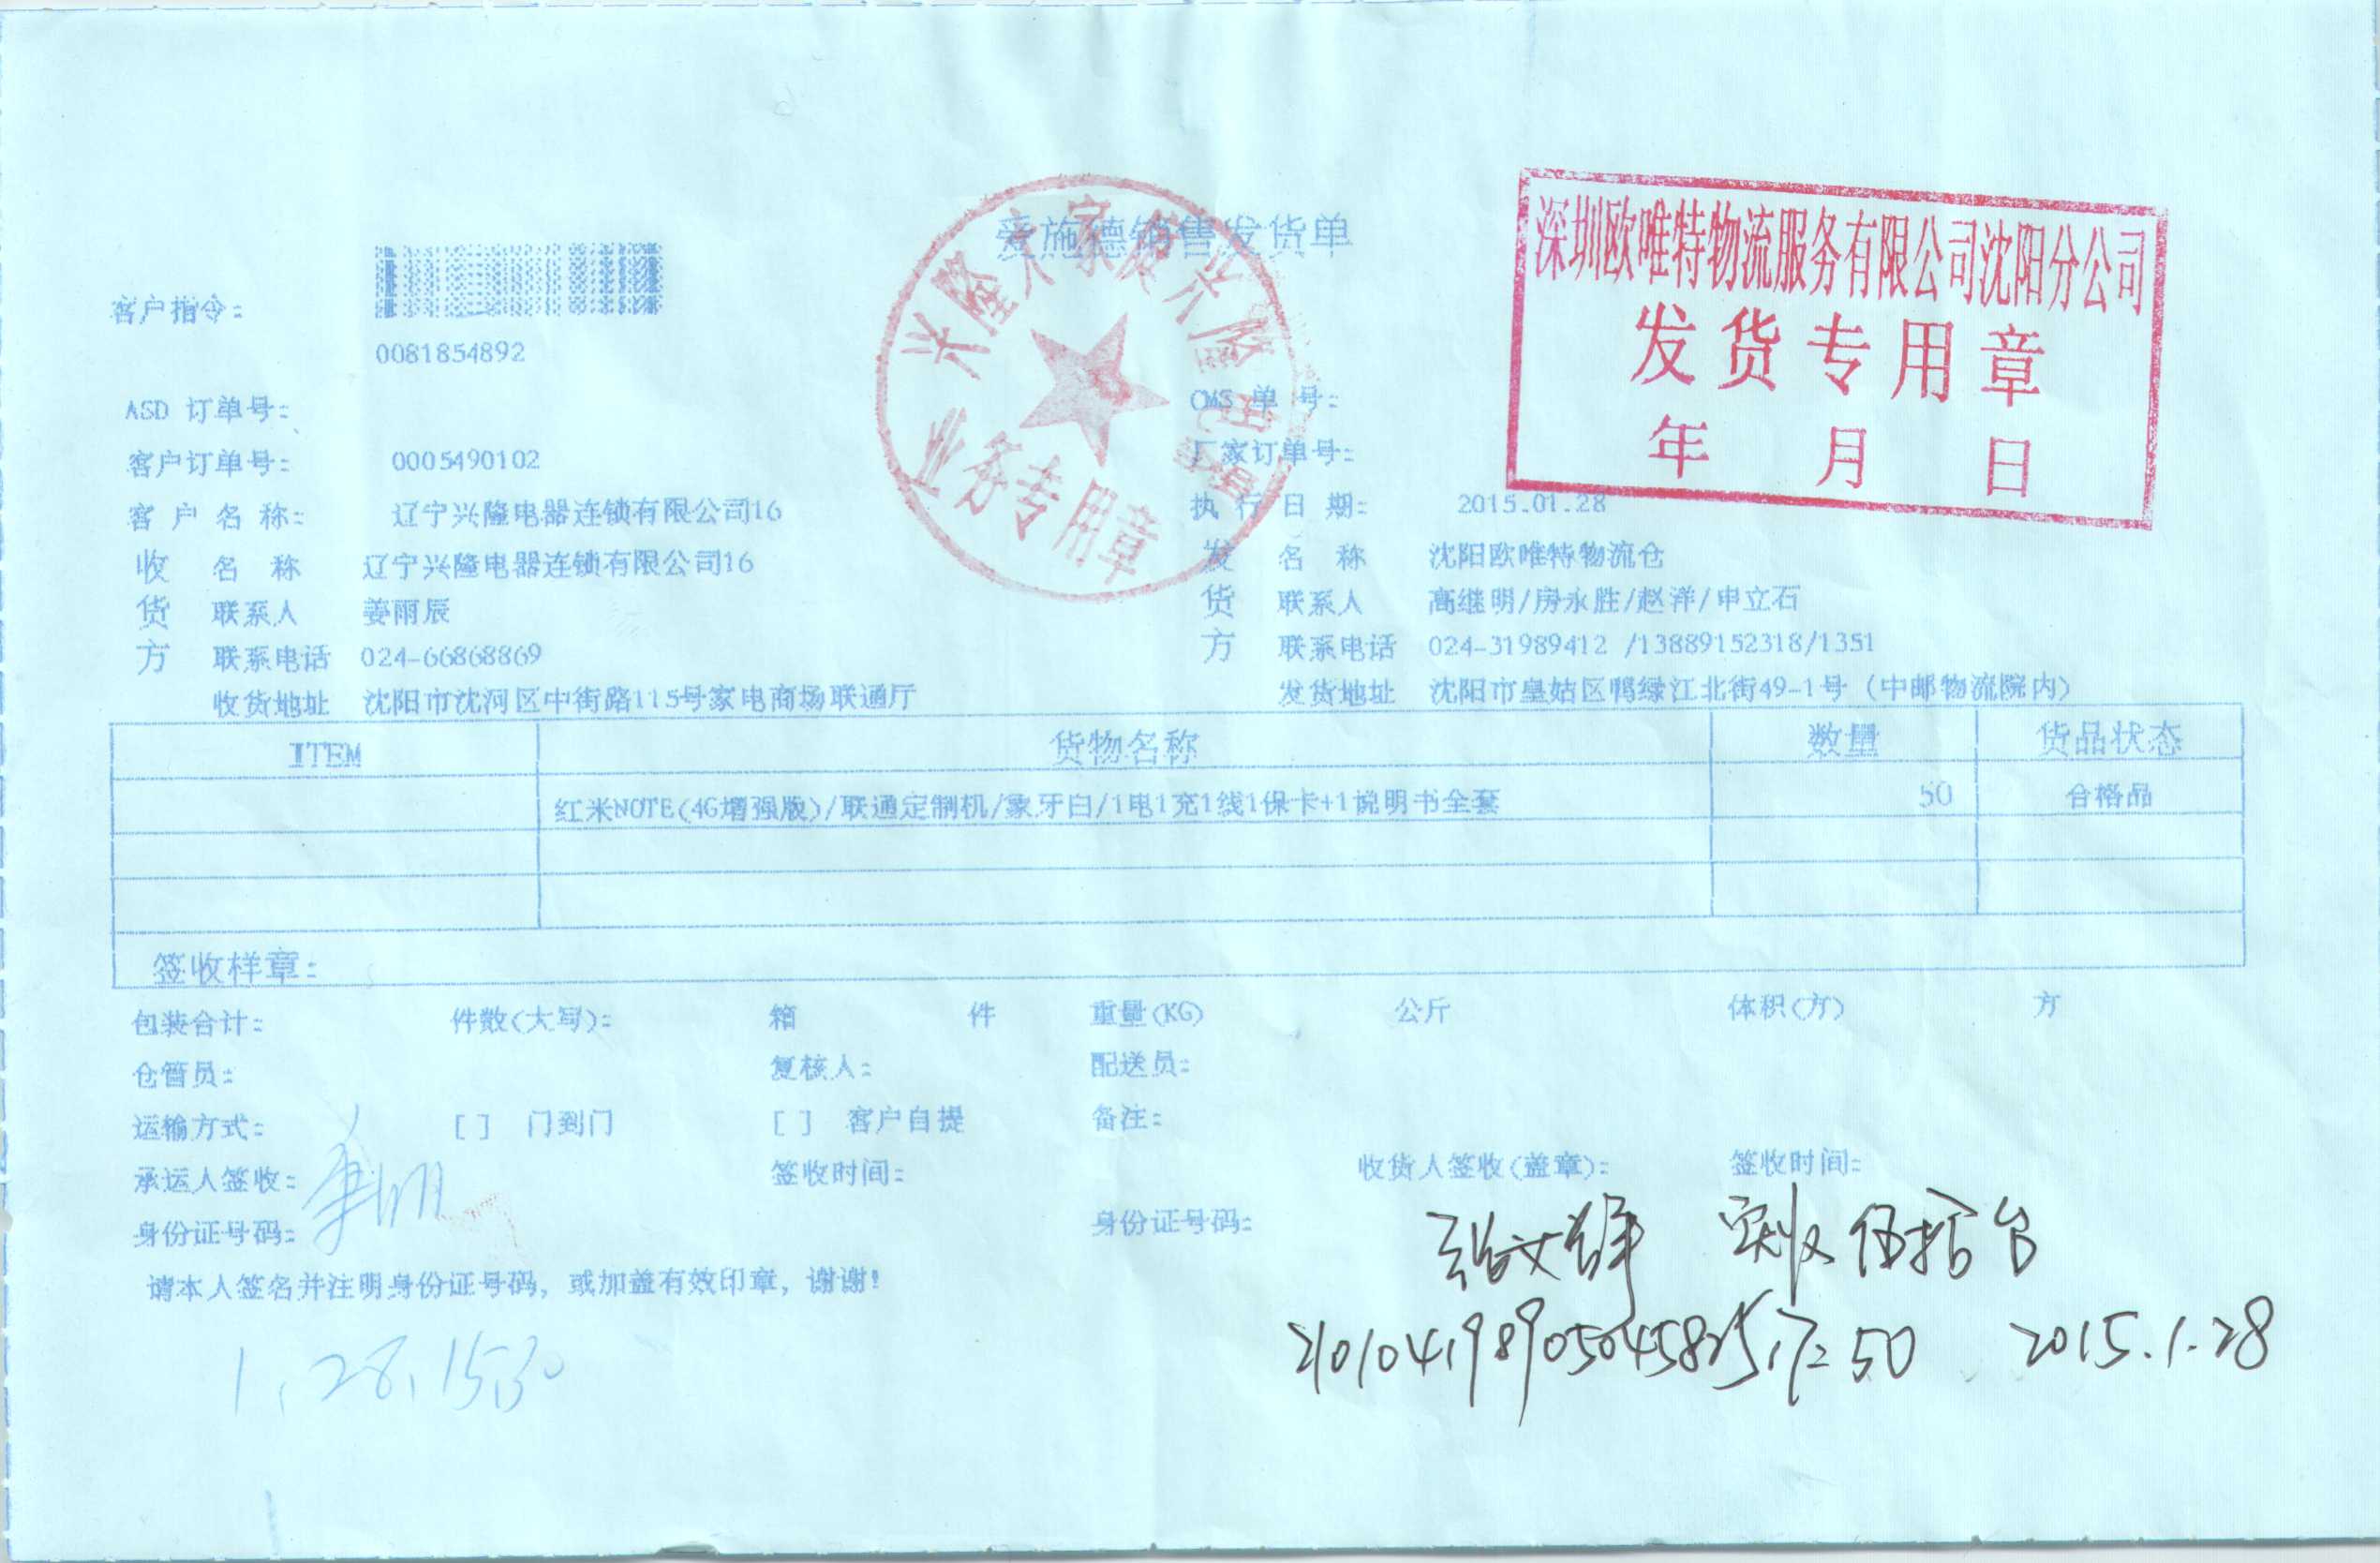 爱施德销售发货单
深圳欧唯特物流服务有限公司沈阳分公司
发货专用章
年 月 日
兴隆大家庭兴隆
业务专用章
客户指令:
0081854892
ASD 订单号:
OMS 单 号:
客户订单号: 0005490102
厂家订单号:
客 户 名 称: 辽宁兴隆电器连锁有限公司16
执 行 日 期: 2015.01.28
收 名 称 辽宁兴隆电器连锁有限公司16
发 名 称 沈阳欧唯特物流仓
货 联系人 姜雨辰
货 联系人 高继明/房永胜/赵洋/申立石
方 联系电话 024-66868869
方 联系电话 024-31989412 /13889152318/1351
收货地址 沈阳市沈河区中街路115号家电商场联通厅
发货地址 沈阳市皇姑区鸭绿江北街49-1号 (中邮物流院内)
ITEM 货物名称 数量 货品状态
红米NOTE(4G增强版)/联通定制机/象牙白/1电1充1线1保卡+1说明书全套 50 合格品
签收样章:
包装合计: 件数(大写): 箱 件 重量(KG) 公斤 体积(方) 方
仓管员: 复核人: 配送员:
运输方式: [ ] 门到门 [ ] 客户自提 备注:
承运人签收: 签收时间: 收货人签收(盖章): 签收时间:
身份证号码: 身份证号码:
实收伍拾台
请本人签名并注明身份证号码, 或加盖有效印章, 谢谢!
50 2015.1.28
1.28.1530